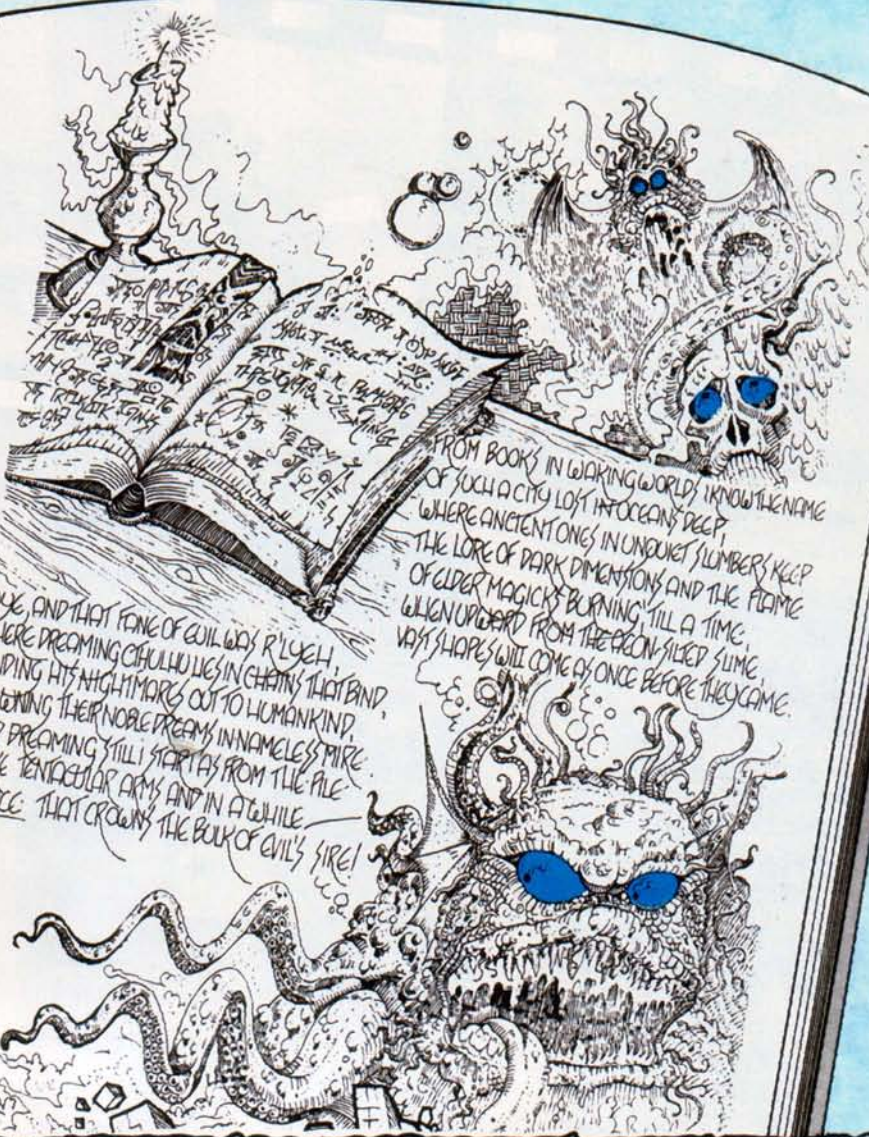 FROM BOOKS IN WAKING WORLDS I KNOW THE NAME
OF SUCH A CITY LOST IN OCEANS DEEP,
WHERE ANCIENT ONES IN UNQUIET SLUMBERS KEEP
THE LORE OF DARK DIMENSIONS AND THE FLAME
OF ELDER MAGICKS BURNING, TILL A TIME,
WHEN UPWARD FROM THE AEON-SILTED SLIME,
VAST SHAPES WILL COME AS ONCE BEFORE THEY CAME.
AND THAT FANE OF EVIL WAS R'LYEH,
DREAMING CTHULHU LIES IN CHAINS THAT BIND,
HIS NIGHTMARES OUT TO HUMANKIND,
THEIR NOBLE DREAMS IN NAMELESS MIRE.
DREAMING STILL I START AS FROM THE PILE
TENTACULAR ARMS AND IN A WHILE
THAT CROWNS THE BULK OF EVIL'S SIRE!